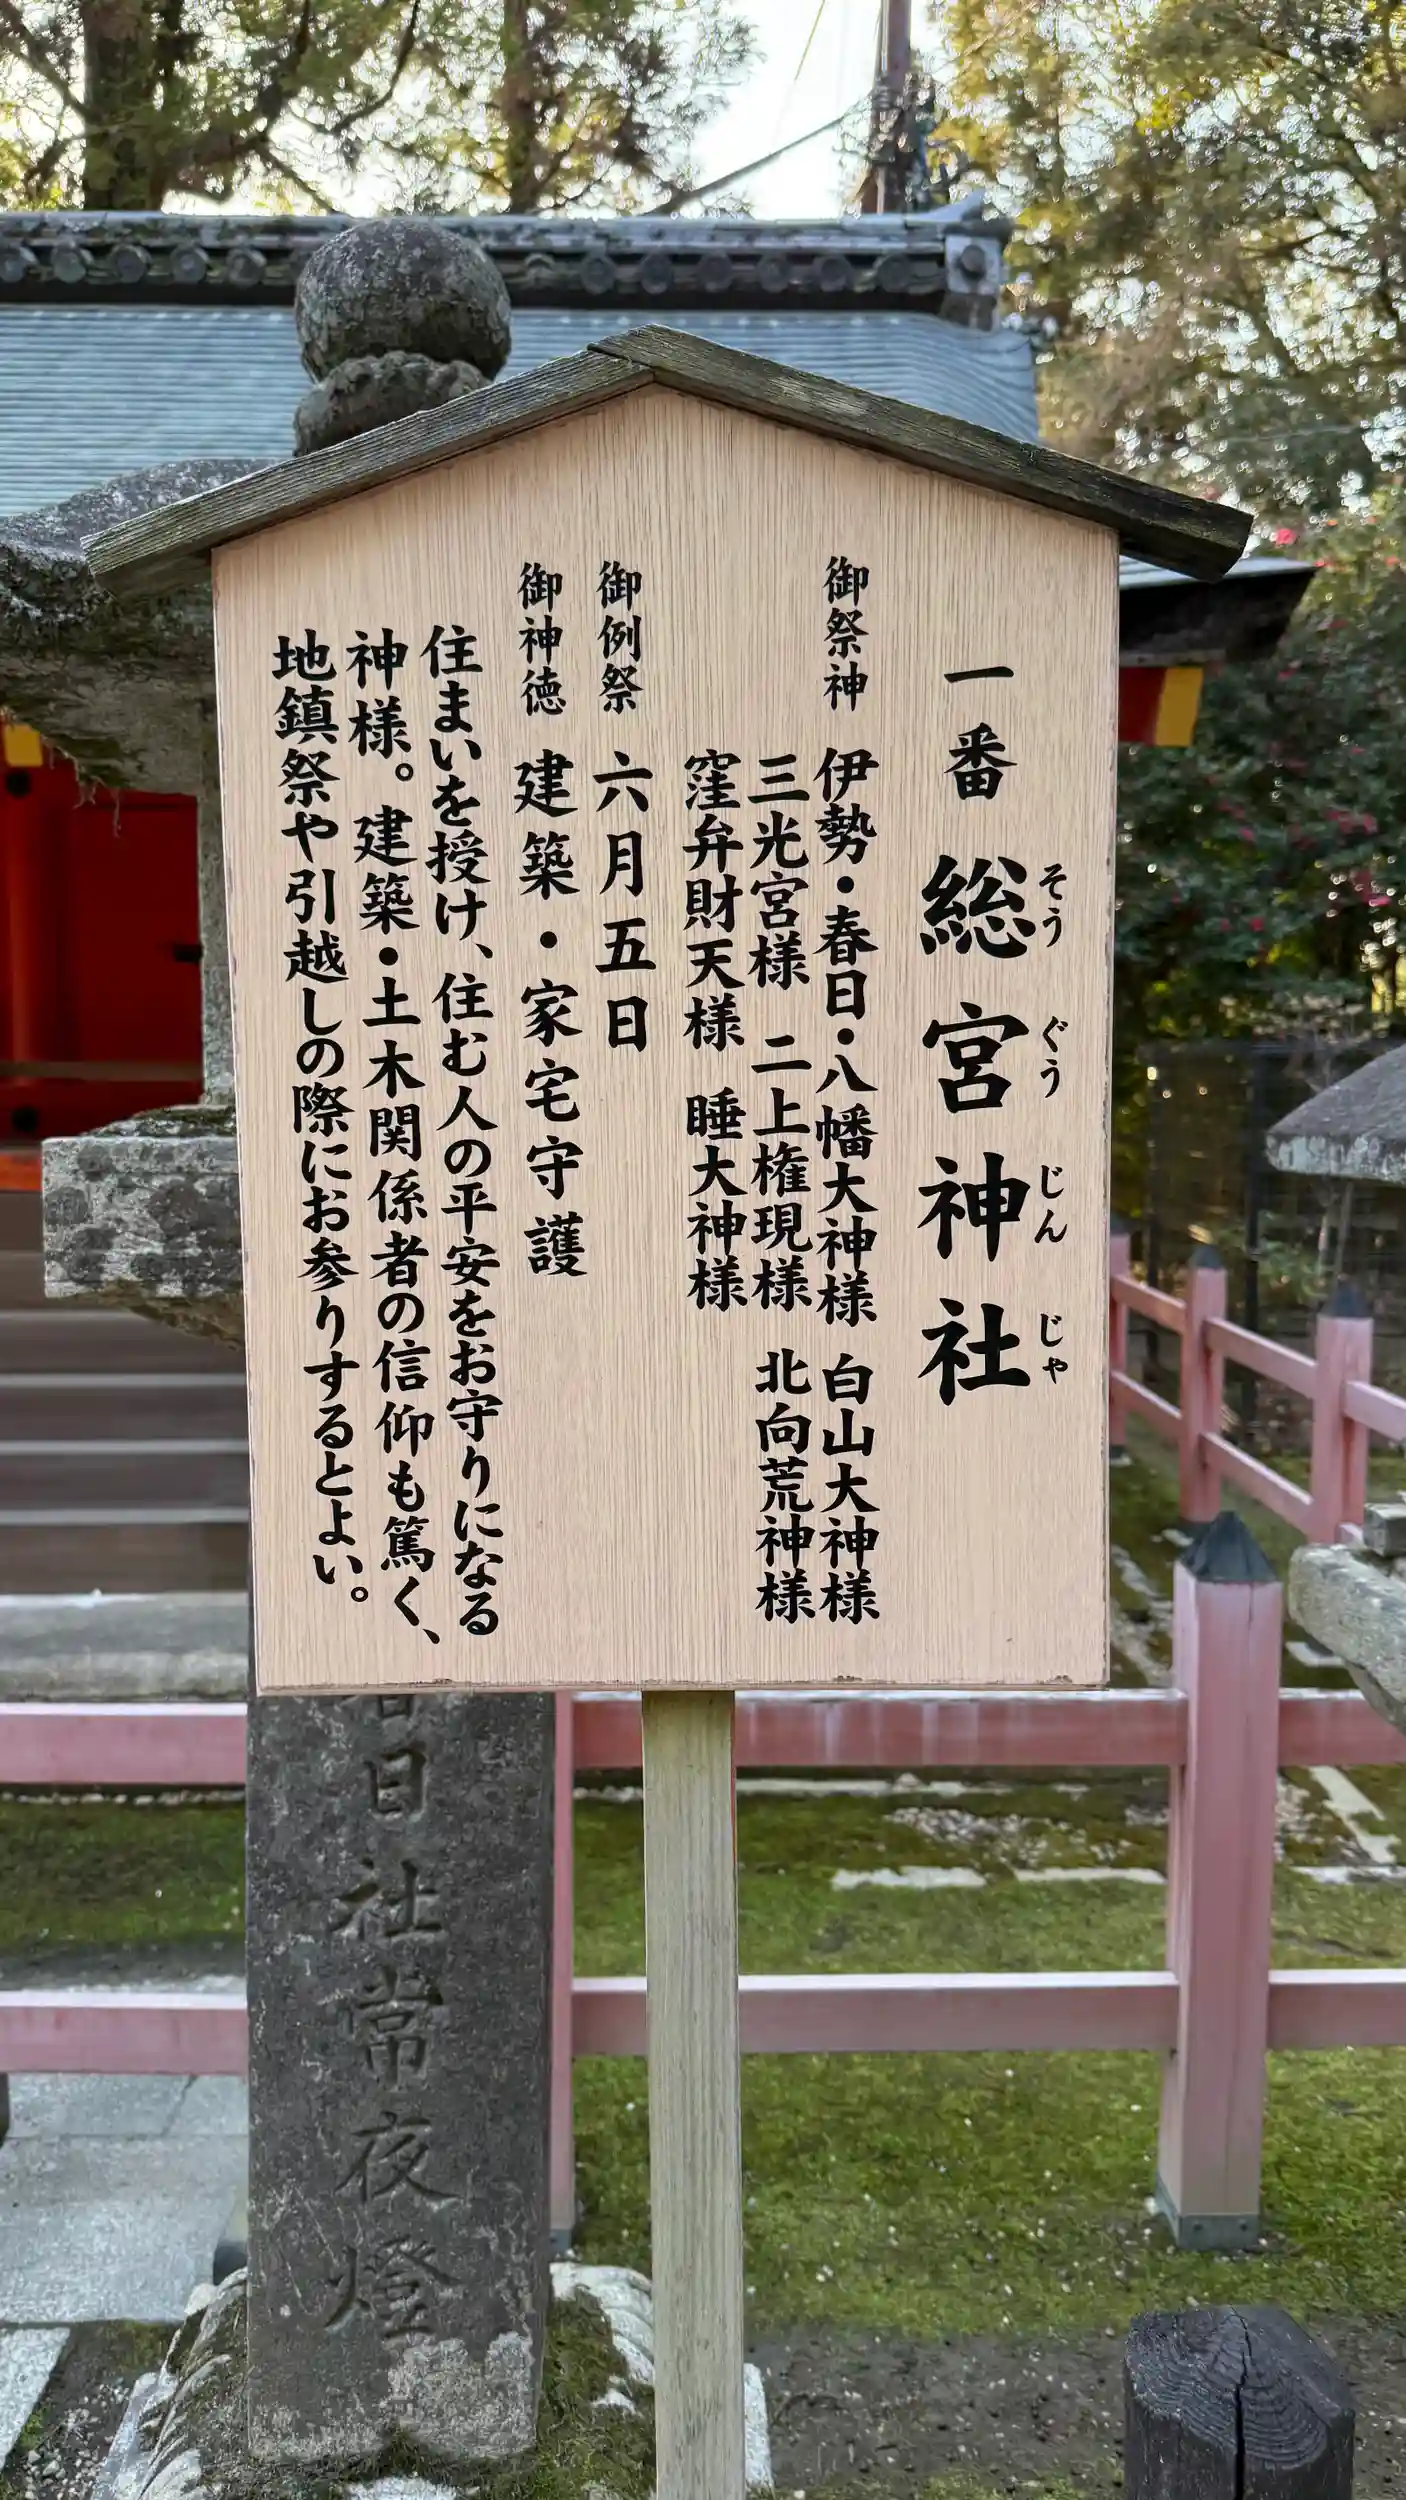 一番 総宮神社
そうぐうじんじゃ
御祭神 伊勢・春日・八幡大神様 白山大神様
三光宮様 二上権現様 北向荒神様
窪弁財天様 睡大神様
御例祭 六月五日
御神徳 建築・家宅守護
住まいを授け、住む人の平安をお守りになる
神様。建築・土木関係者の信仰も篤く、
地鎮祭や引越しの際にお参りするとよい。
日社常夜燈